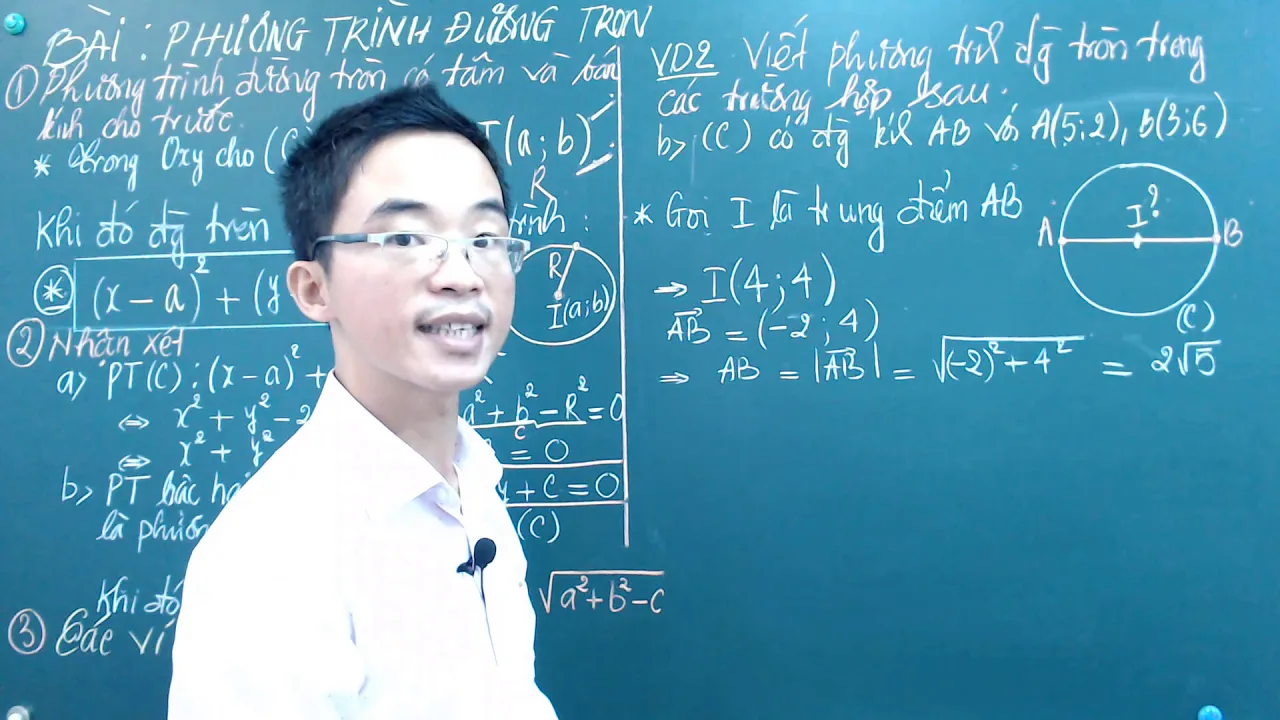 BÀI : PHƯƠNG TRÌNH ĐƯỜNG TRÒN
① Phương trình đường tròn có tâm và bán
kính cho trước.
* Trong Oxy cho (C I(a; b)
R
Khi đó đg tròn trình :
* (x - a)² + (y
R
I(a;b)
② Nhận xét
a> PT(C) : (x - a)² +
⇔ x² + y² - 2 a² + b² - R² = 0
c
⇔ x² + y² = 0
b> PT bậc hai y + C = 0
là phươn (C)
Khi đó √a² + b² - c
③ Các ví
VD2 Viết phương trìl đg tròn trong
các trường hợp sau.
b> (C) có đg kíl AB với A(5;2), B(3;6)
* Gọi I là trung điểm AB
⇒ I(4;4)
AB = (-2; 4)
⇒ AB = |AB| = √(-2)² + 4² = 2√5
I?
A B
(C)